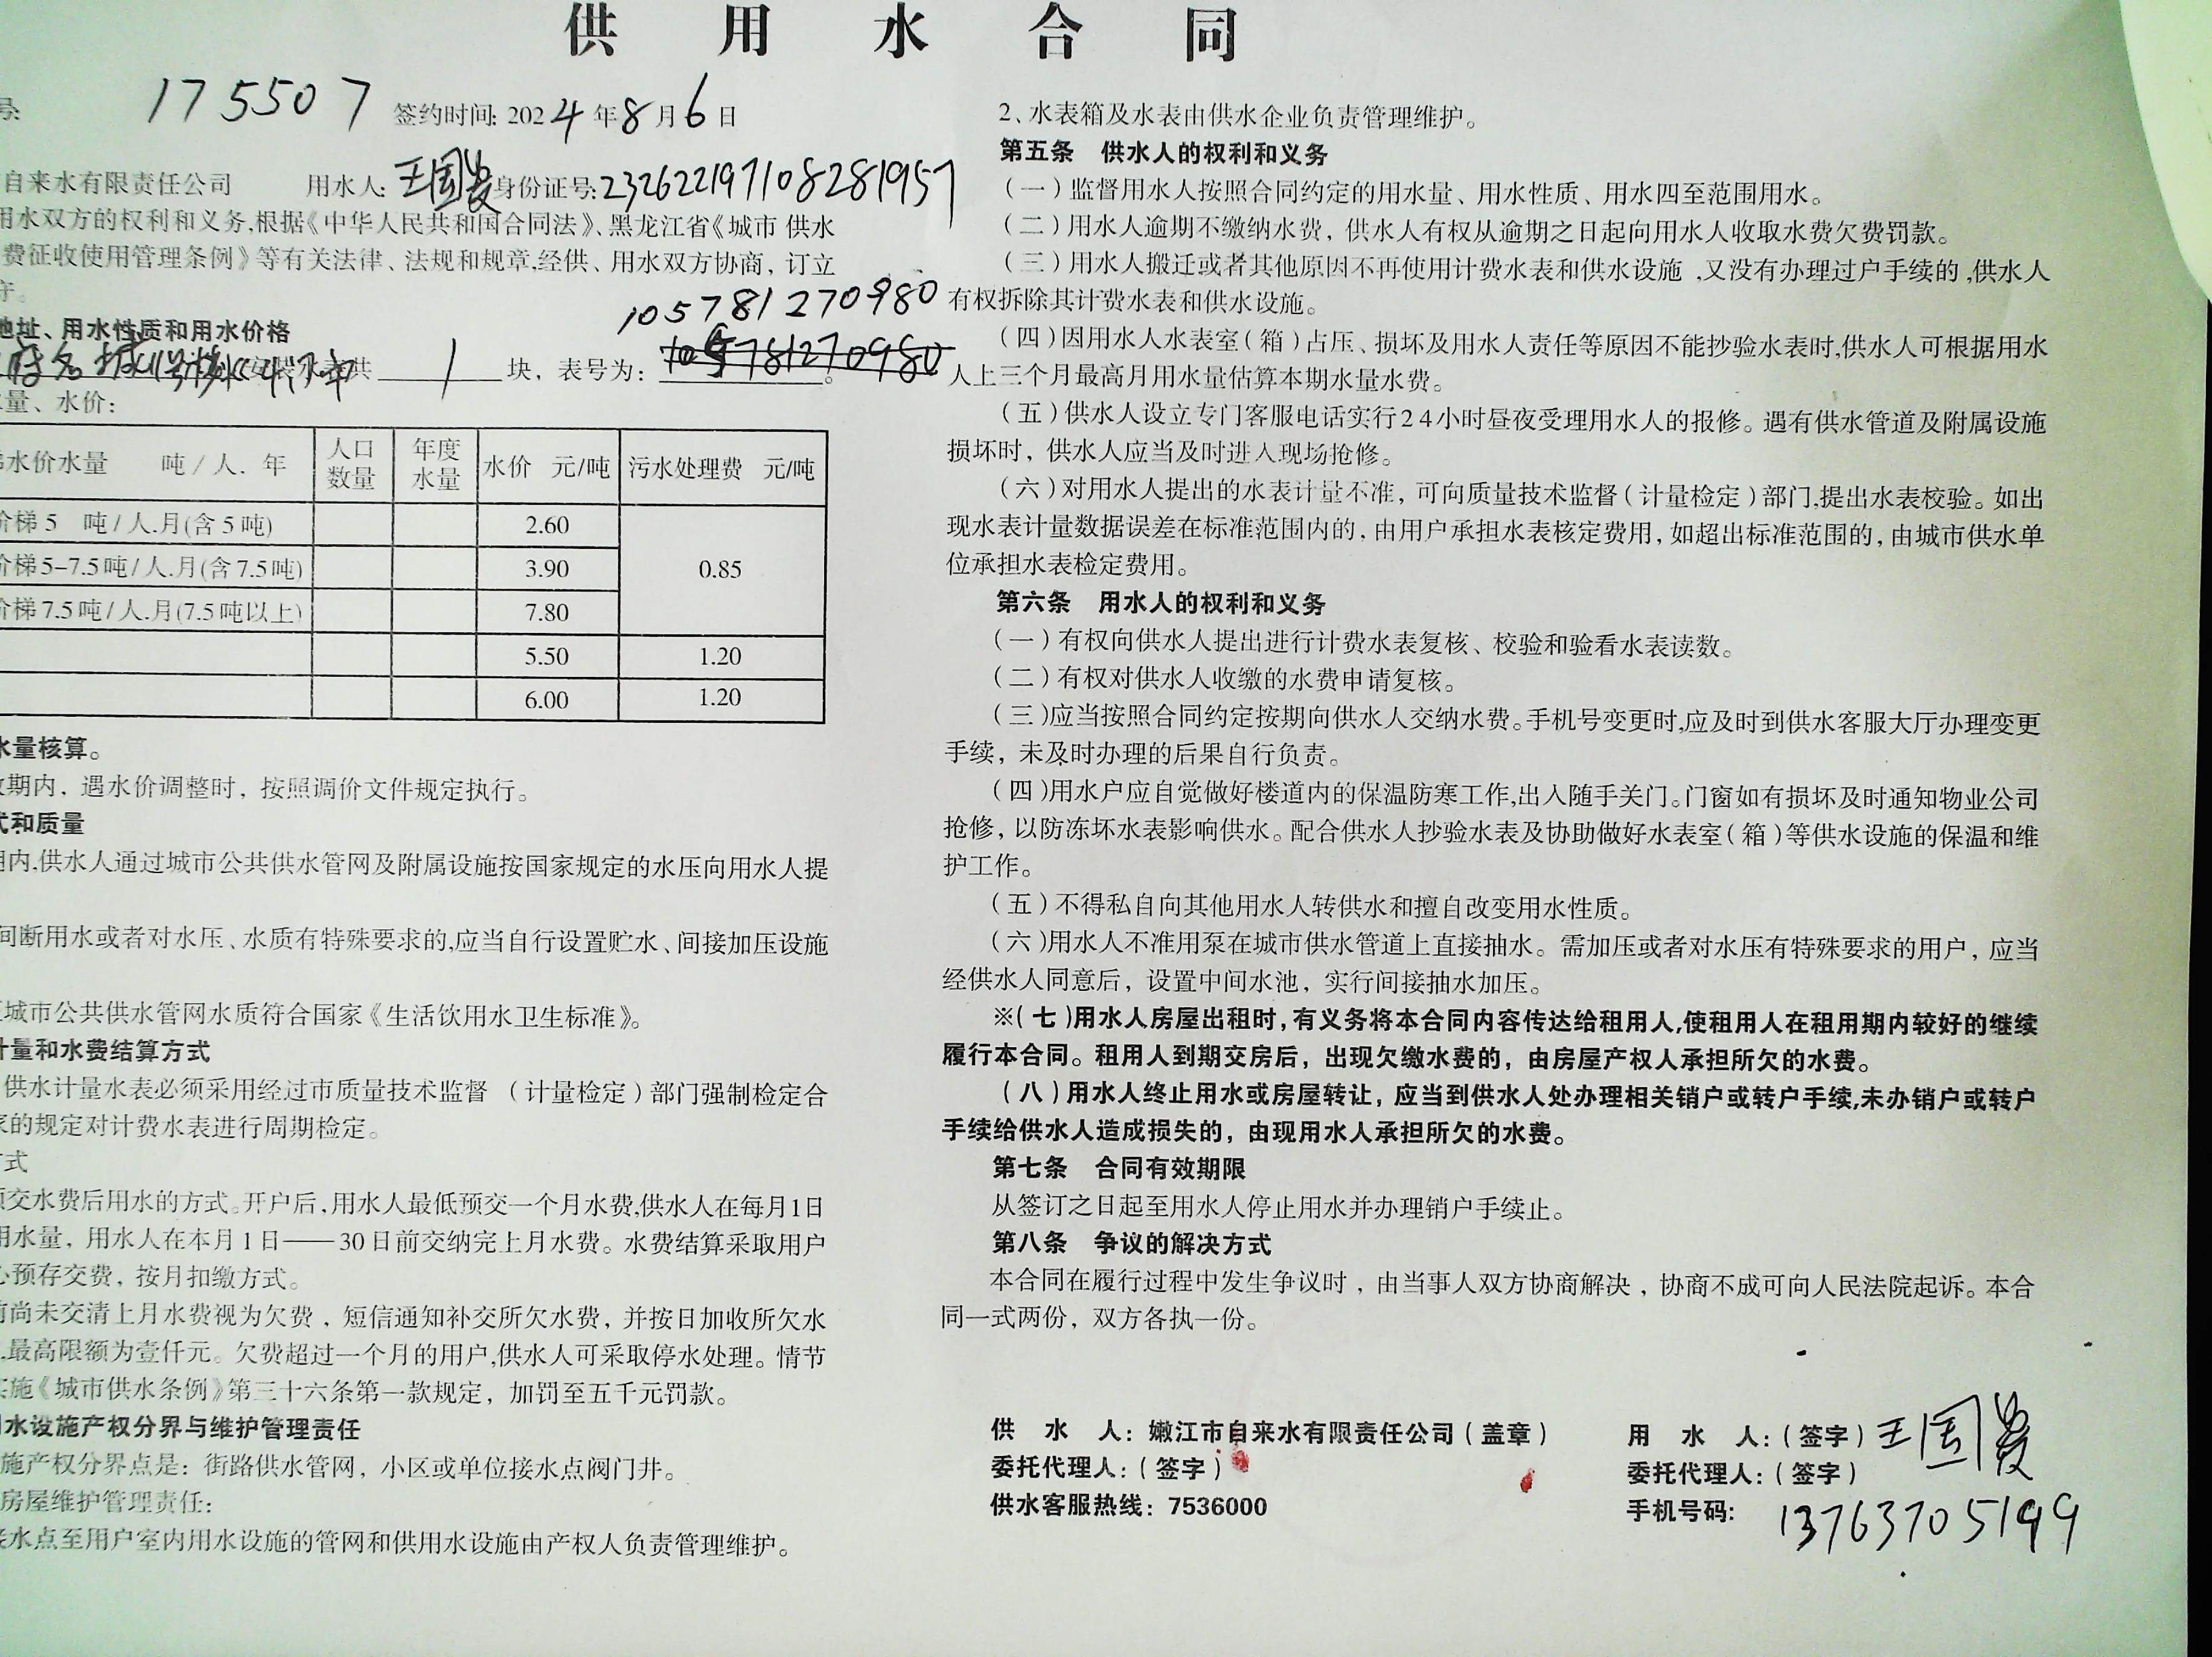 供 用 水 合 同
号: 175507 签约时间: 2024年8月6日
自来水有限责任公司 用水人: 王国 身份证号: 232622197108281957
用水双方的权利和义务,根据《中华人民共和国合同法》、黑龙江省《城市 供水
费征收使用管理条例》等有关法律、法规和规章,经供、用水双方协商，订立
守。
105781270980
地址、用水性质和用水价格
名城 安装水表共 1 块，表号为: 105781270980。
量、水价:
水价水量 吨/人. 年 人口数量 年度水量 水价 元/吨 污水处理费 元/吨
阶梯 5 吨/人.月(含 5 吨) 2.60 0.85
阶梯5-7.5吨/人.月(含7.5吨) 3.90
阶梯7.5吨/人.月(7.5吨以上) 7.80
5.50 1.20
6.00 1.20
水量核算。
期内，遇水价调整时，按照调价文件规定执行。
式和质量
期内,供水人通过城市公共供水管网及附属设施按国家规定的水压向用水人提
间断用水或者对水压、水质有特殊要求的,应当自行设置贮水、间接加压设施
城市公共供水管网水质符合国家《生活饮用水卫生标准》。
计量和水费结算方式
供水计量水表必须采用经过市质量技术监督 （计量检定）部门强制检定合
家的规定对计费水表进行周期检定。
方式
预交水费后用水的方式。开户后,用水人最低预交一个月水费,供水人在每月1日
用水量，用水人在本月1日——30日前交纳完上月水费。水费结算采取用户
预存交费，按月扣缴方式。
前尚未交清上月水费视为欠费，短信通知补交所欠水费，并按日加收所欠水
,最高限额为壹仟元。欠费超过一个月的用户,供水人可采取停水处理。情节
实施《城市供水条例》第三十六条第一款规定，加罚至五千元罚款。
用水设施产权分界与维护管理责任
施产权分界点是：街路供水管网，小区或单位接水点阀门井。
房屋维护管理责任:
接水点至用户室内用水设施的管网和供用水设施由产权人负责管理维护。
2、水表箱及水表由供水企业负责管理维护。
第五条 供水人的权利和义务
（一）监督用水人按照合同约定的用水量、用水性质、用水四至范围用水。
（二）用水人逾期不缴纳水费，供水人有权从逾期之日起向用水人收取水费欠费罚款。
（三）用水人搬迁或者其他原因不再使用计费水表和供水设施,又没有办理过户手续的,供水人
有权拆除其计费水表和供水设施。
（四）因用水人水表室（箱）占压、损坏及用水人责任等原因不能抄验水表时,供水人可根据用水
人上三个月最高月用水量估算本期水量水费。
（五）供水人设立专门客服电话实行24小时昼夜受理用水人的报修。遇有供水管道及附属设施
损坏时，供水人应当及时进入现场抢修。
（六）对用水人提出的水表计量不准，可向质量技术监督（计量检定）部门,提出水表校验。如出
现水表计量数据误差在标准范围内的，由用户承担水表核定费用，如超出标准范围的，由城市供水单
位承担水表检定费用。
第六条 用水人的权利和义务
（一）有权向供水人提出进行计费水表复核、校验和验看水表读数。
（二）有权对供水人收缴的水费申请复核。
（三）应当按照合同约定按期向供水人交纳水费。手机号变更时,应及时到供水客服大厅办理变更
手续，未及时办理的后果自行负责。
（四）用水户应自觉做好楼道内的保温防寒工作,出入随手关门。门窗如有损坏及时通知物业公司
抢修，以防冻坏水表影响供水。配合供水人抄验水表及协助做好水表室（箱）等供水设施的保温和维
护工作。
（五）不得私自向其他用水人转供水和擅自改变用水性质。
（六）用水人不准用泵在城市供水管道上直接抽水。需加压或者对水压有特殊要求的用户，应当
经供水人同意后，设置中间水池，实行间接抽水加压。
※（七）用水人房屋出租时，有义务将本合同内容传达给租用人,使租用人在租用期内较好的继续
履行本合同。租用人到期交房后，出现欠缴水费的，由房屋产权人承担所欠的水费。
（八）用水人终止用水或房屋转让，应当到供水人处办理相关销户或转户手续,未办销户或转户
手续给供水人造成损失的，由现用水人承担所欠的水费。
第七条 合同有效期限
从签订之日起至用水人停止用水并办理销户手续止。
第八条 争议的解决方式
本合同在履行过程中发生争议时，由当事人双方协商解决，协商不成可向人民法院起诉。本合
同一式两份，双方各执一份。
供 水 人：嫩江市自来水有限责任公司（盖章） 用 水 人：（签字）王国
委托代理人：（签字） 委托代理人：（签字）
供水客服热线：7536000 手机号码: 13763705199